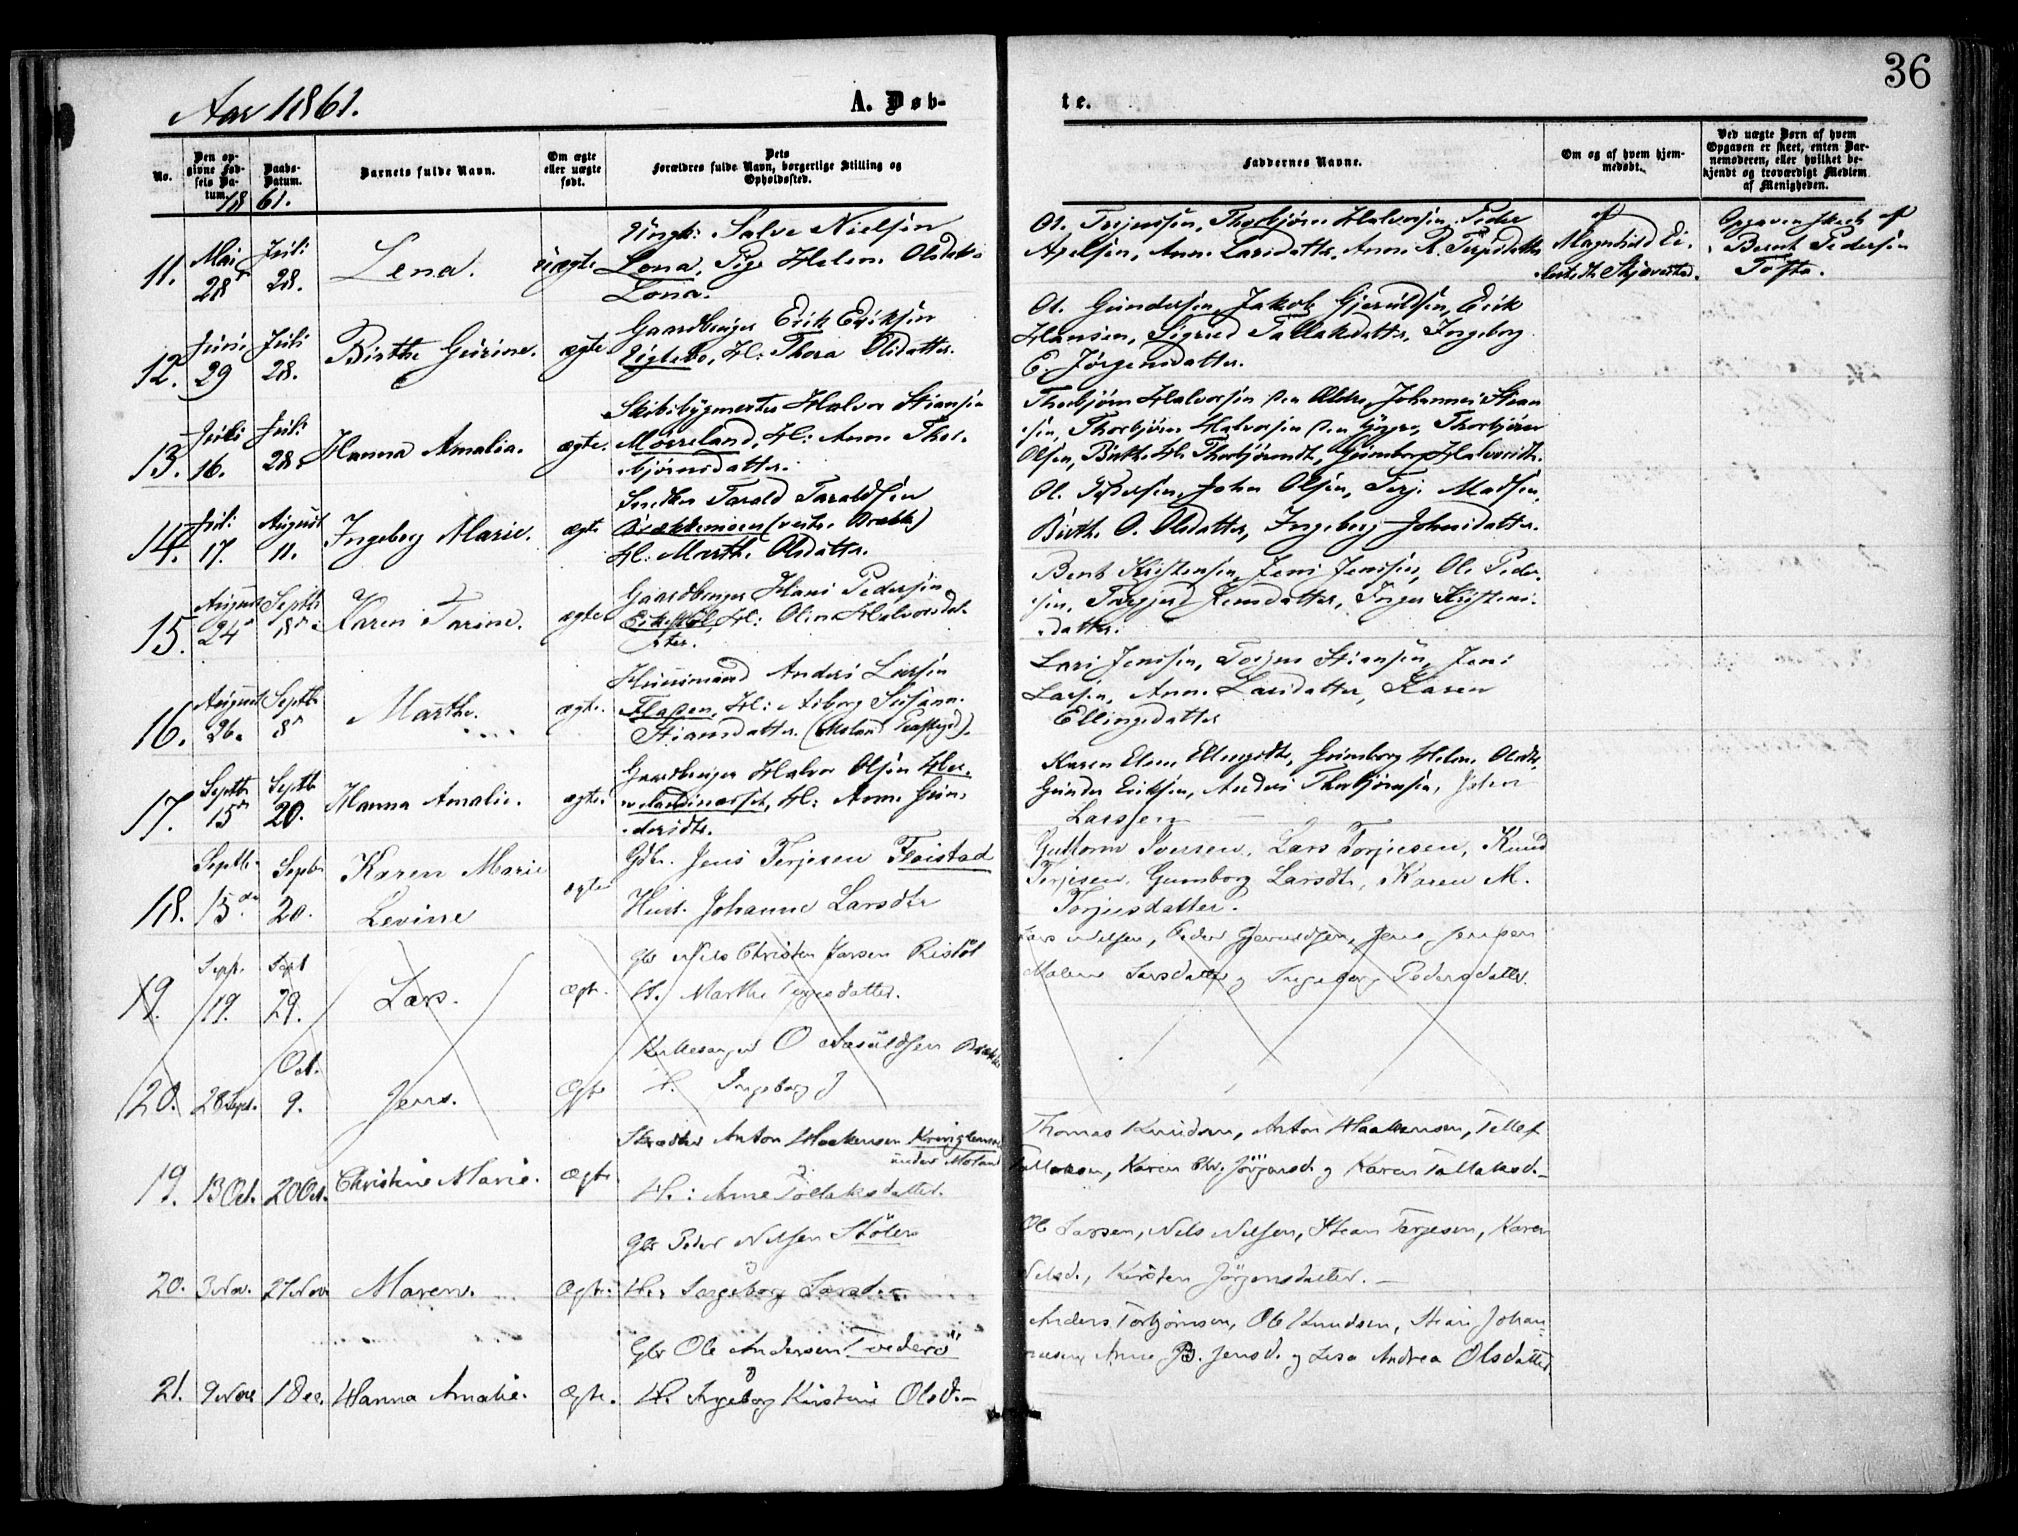 36
Aar 1861.
A. Døb-
te.
No.
Den op-
givne Fød-
sels Da-
tum.
Daabs-
Datum.
Barnets fulde Navn.
Om ægte
eller uægte
født.
Dets
Forældres fulde Navn, borgerlige Stilling og
Opholdssted.
Faddernes Navne.
Om og af hvem hjem-
medøbt.
Ved uægte Børn af hvem
Opgaven er skeet, enten Bar-
nemoderen, eller hvilket be-
kjendt og troværdigt Medlem
af Menigheden.
1861.
11.
Mai
28
Juli
28.
Lena.
uægte
Ungk: Salve Nielsen
Lona, Pige Helene Olsdatter
Lona.
Ole Terjussen, Thorbjørn Halvorsen, Peder
Axelsen, Anne Larsdatter, Anne R. Terjesdatter
af
Magnhild
Skjævestad.
Opgaven skeet af
Bernt Pedersen
Tofte.
12.
Juni
29
Juli
28.
Birthe Gurine.
ægte
Gaardbruger Erik Eriksen
Eigtebø, H: Thora Olsdatter.
Ole Gundersen, Jakob Gjeruldsen, Erik
Hansen, Sigrid Tallaksdatter, Ingeborg
E. Jørgensdatter.
13.
Juli
16.
Juli
28.
Hanna Amalia.
ægte.
Skibsbygmester Halvor Stiansen
Morreland, H: Anne Thor-
bjørnsdatter.
Thorbjørn Halvorsen den Ældre, Johannes Stian-
sen, Thorbjørn Halvorsen den Yngre, Thorbjørn
Olsen, Birthe H. Thorbjørnsdt, Gunborg Halvorsdtr.
14.
Juli
17.
August
11.
Ingeborg Marie.
ægte
Snedker Tarald Taraldsen
Brækkemoen (vestre Brække)
H: Marthe Olsdatter.
Ole Pedersen, John Olsen, Terje Madsen,
Birthe O. Olsdatter, Ingeborg Johnsdatter.
15.
August
24
Septbr
8
Karen Tarine.
ægte
Gaardbruger Hans Pedersen
H: Oline Halvorsdat-
ter.
Bent Kristensen, Jens Jensen, Ole Peder-
sen, Torgjerd Jensdatter, Inger Kristens-
datter.
16.
August
26.
Septbr
8
Marthe.
ægte.
Huusmand Anders Larsen
Flaten, H: Aaborg Susanne
Stiansdatter. (Moland Præstegjd).
Lars Jensen, Torjus Stiansen, Jens
Larsen, Anne Larsdatter, Karen
Ellingsdatter
17.
Septbr
15
Septbr
20.
Hanna Amalie.
ægte.
Gaardbruger Halvor Olsen
H: Anne Gun-
dersdtr.
Karen Elene Ellingsdtr, Gunborg Helene Olsdtr,
Gunder Eriksen, Anders Thorbjørnsen, John
Larssen
18.
Septbr
15de
Septbr
20.
Karen Marie
Levine
ægte
Gdbr. Jens Terjesen Flaistad
Hust. Johanne Larsdtr
Guttorm Iversen, Lars Torjusen, Knud
Terjesen, Gunborg Larsdtr, Karen M.
Torjusdatter.
19.
Sept.
19.
Sept
29.
Lars.
Ægte.
Gbr Nils Christen Jensen Ristøl
H. Marthe Terjesdatter.
Lars Nilsen, Peder Gjeruldsen, Jens Jensen
Malene Larsdatter og Ingeborg Pedersdatter.
20.
28 Sept.
Oct.
9.
Jens.
Ægte
Kirkesanger O Aasuldsen Brække
H. Ingeborg J
19.
13 Oct.
20 Oct.
Christine Marie.
Ægte.
Skræder Anton Haakensen
under Moland
H.: Anne Tollaksdatter.
Thomas Knudsen, Anton Haakensen, Tellef
Tallaksen, Karen Chr. Jørgensd. og Karen Tallaksd.
20.
3 Nov.
27 Nov
Maren.
Ægte.
Gbr Peder Nilsen Stølen
H. Ingeborg Larsd.
Ole Larsen, Nils Nilsen, Stian Terjesen, Karen
Nilsd., Kirsten Jørgensdatter.
21.
9 Nov
1 Dec.
Hanna Amalie.
Ægte.
Gbr Ole Andersen Tvederø
H. Ingeborg Kirstine Olsd.
Anders Torbjørnsen, Ole Knudsen, Stian Johan-
nesen, Anne B. Jensd. og Lisa Andrea Olsdatter